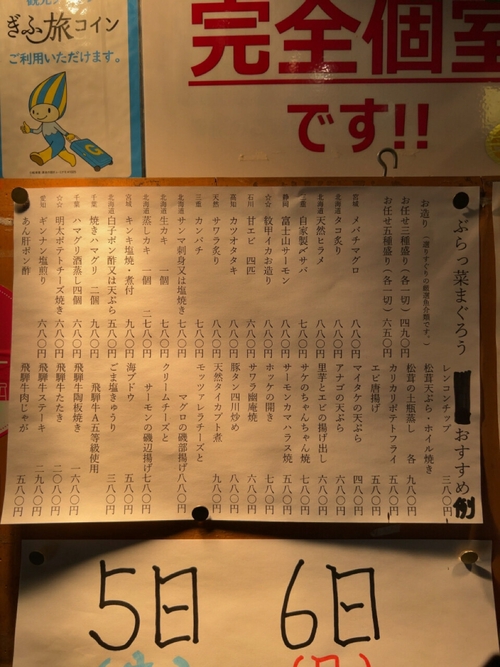 ぎふ旅コイン
ご利用いただけます。
完全個室
です!!
ぶらっ菜まぐろう
おすすめ
例
お造り
お任せ三種盛り（各一切）四九〇円
お任せ五種盛り（各一切）六五〇円
宮城 メバチマグロ 八八〇円
北海道 タコ炙り 八八〇円
北海道 天然ヒラメ 八八〇円
三重 自家製〆サバ 八八〇円
静岡 富士山サーモン 八八〇円
☆☆ 紋甲イカお造り 八八〇円
石川 甘エビ 四匹 八八〇円
高知 カツオタタキ 八八〇円
天然 サワラ炙り 八八〇円
三重 カンパチ 七八〇円
北海道 サンマ刺身又は塩焼き 七八〇円
北海道 生カキ 一個
北海道 蒸しカキ 一個 二七八〇円
宮城 キンキ塩焼・煮付
北海道 白子ポン酢又は天ぷら 五八〇円
千葉 焼きハマグリ 二個 九八〇円
千葉 ハマグリ酒蒸し四個
☆☆ 明太ポテトチーズ焼き 六八〇円
愛知 ギンナン塩煎り 六八〇円
あん肝ポン酢
レンコンチップ 三八〇円
松茸天ぷら・ホイル焼き
松茸の土瓶蒸し 各 九八〇円
カリカリポテトフライ 五八〇円
エビ唐揚げ 五八〇円
マイタケの天ぷら 四八〇円
アナゴの天ぷら 六八〇円
里芋とエビの揚げ出し 六八〇円
サケのちゃんちゃん焼 七八〇円
サーモンカマハラス焼 五八〇円
ホッケの開き 七八〇円
サワラ幽庵焼 六八〇円
豚タン四川炒め 六八〇円
天然タイカブト煮 九八〇円
モッツァレラチーズと
マグロの磯部揚げ 八八〇円
クリームチーズと
サーモンの磯辺揚げ 七八〇円
海ブドウ 五八〇円
ごま塩きゅうり 三八〇円
飛騨牛A五等級使用
飛騨牛陶板焼き 一六八〇円
飛騨牛たたき 二〇八〇円
飛騨牛ステーキ 二九八〇円
飛騨牛肉じゃが 五八〇円
5日
6日